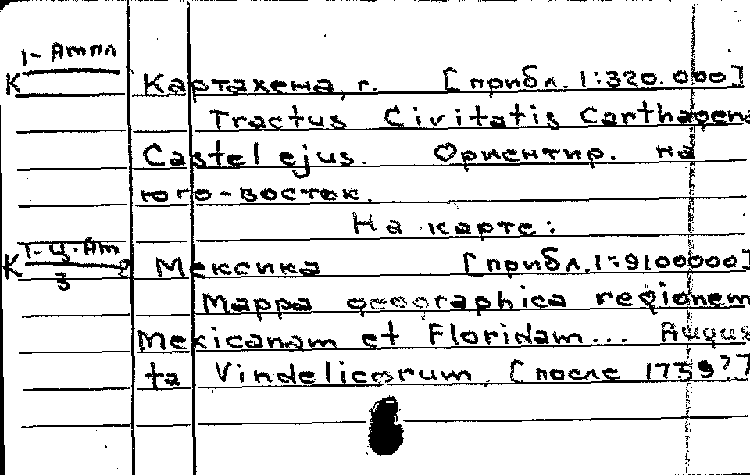 К 1-Атпл
Картахена, г. [прибл. 1:320.000]
Tractus Civitatis Carthagena
Castel ejus. Ориентир. на
юго-восток.
На карте:
К 1-Ц.Ам 3
Мексика [прибл. 1:9100000]
Mappa geographica regionem
Mexicanam et Floridam... Augus
ta Vindelicorum, [после 1735?]